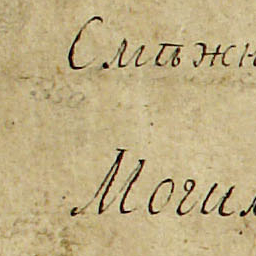 Смѣжн
Могил